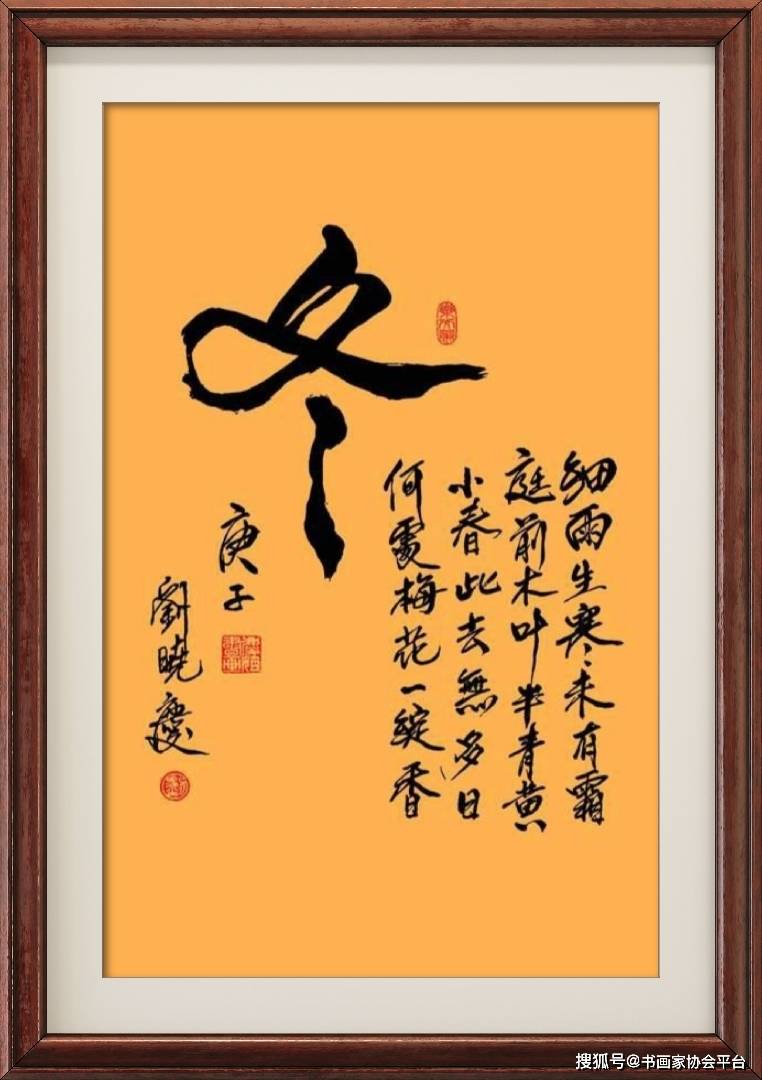 冬
細雨生寒未有霜
庭前木叶半青黄
小春此去無多日
何處梅花一綻香
庚子
劉曉慶
搜狐号@书画家协会平台